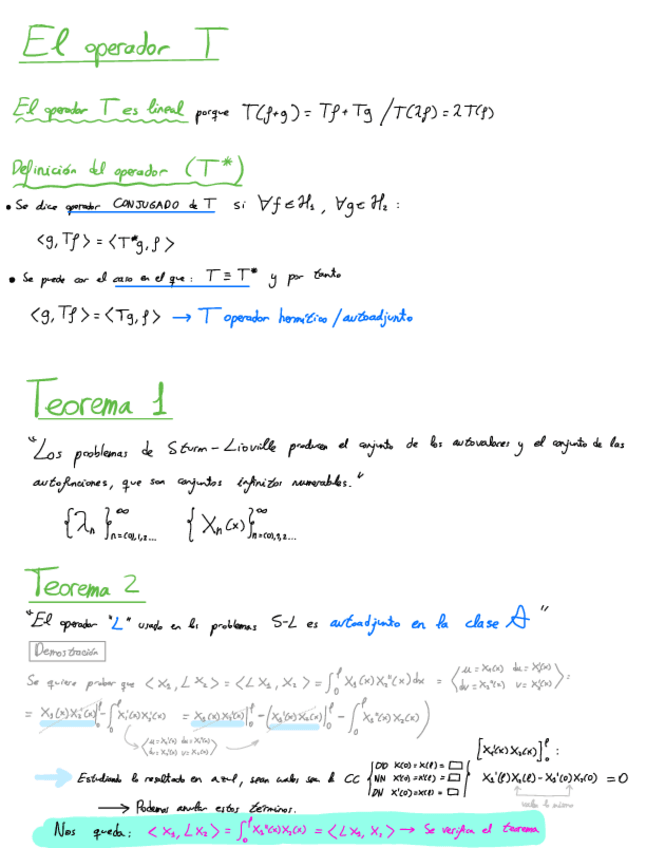 El operador T
El operador T es lineal porque T(f+g) = Tf + Tg / T(λf) = λT(f)
Definición del operador (T*)
• Se dice operador CONJUGADO de T si ∀f∈H₁, ∀g∈H₂ :
<g,Tf> = <T*g,f>
• Se puede dar el caso en el que: T ≡ T* y por tanto
<g,Tf> = <Tg,f> → T operador hermítico/autoadjunto
Teorema 1
"Los problemas de Sturm-Lioville producen el conjunto de los autovalores y el conjunto de las
autofunciones, que son conjuntos infinitos numerables."
{λn}∞n=(0),1,2... {Xn(x)}∞n=(0),1,2...
Teorema 2
"El operador "L" usado en los problemas S-L es autoadjunto en la clase A"
Demostración
Se quiere probar que <X₁, LX₂> = <LX₁, X₂> = ∫₀ˡ X₁(x)X₂''(x)dx = <u = X₁(x) du = X₁'(x) dv = X₂''(x) v = X₂'(x)> :
= X₁(x)X₂'(x)|₀ˡ - ∫₀ˡ X₁'(x)X₂'(x) = X₁(x)X₂'(x)|₀ˡ - (X₁'(x)X₂(x)|₀ˡ - ∫₀ˡ X₁''(x)X₂(x))
<u = X₁'(x) du = X₁''(x) dv = X₂'(x) v = X₂(x)>
[X₁'(x)X₂(x)]₀ˡ :
→ Estudiando lo resultado en azul, sean cuales sean las CC { DD X(0) = X(ℓ) = □ NN X'(0) = X'(ℓ) = □ DN X'(0) = X(ℓ) = □ X₁'(ℓ)X₂(ℓ) - X₁'(0)X₂(0) = 0
→ Podemos anular estos términos. vale lo mismo
Nos queda: <X₁, LX₂> = ∫₀ˡ X₁''(x)X₂(x) = <LX₁, X₂> → Se verifica el teorema